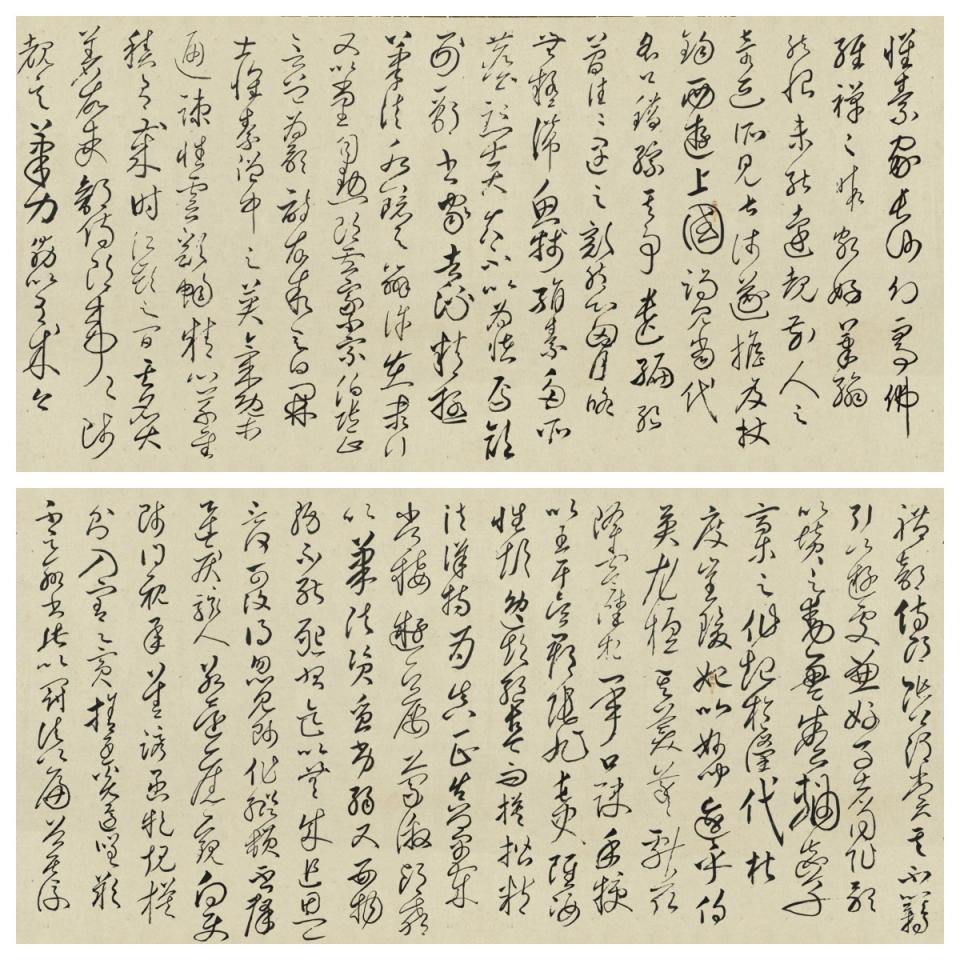 懷素家長沙幼而事佛
經禪之暇頗好筆翰
然恨未能遠覩前人之
奇迹所見甚淺遂擔笈杖
錫西遊上國謁見當代
名公錯綜其事遺編絕
簡往往遇之豁然心胸略
無疑滯魚牋絹素多所
塵點士大夫不以為怪焉顏
刑部書家者流精極
筆法水鏡之辨許在末行
又以尚書司勳郎盧象小宗伯張正
言曾為歌詩故敘之曰開
士懷素僧中之英氣概
通疏性靈豁暢精心草聖
積有歲時江嶺之間其名大
著故吏部侍郎韋公陟
覩其筆力勗以有成今
禮部侍郎張公謂賞其不羈
引以遊處兼好事者同作歌
以贊之動盈卷軸夫草
稾之作起於漢代杜
度崔瑗始以妙聞迨乎伯
英尤擅其美羲獻茲
降虞陸相承口訣手授
以至于吳郡張旭長史雖姿
性顛逸超絕古今而模楷精
法詳特為真正真卿早歲
常接遊居屢蒙激昂教
以筆法資質劣弱又嬰物
務不能懇習迄以無成追思一
言何可復得忽見師作縱橫不群
迅疾駭人若還舊觀向使
師得親承善誘函挹規模
則入室之賓捨子奚適嗟歎
不足聊書此以冠諸篇首其後